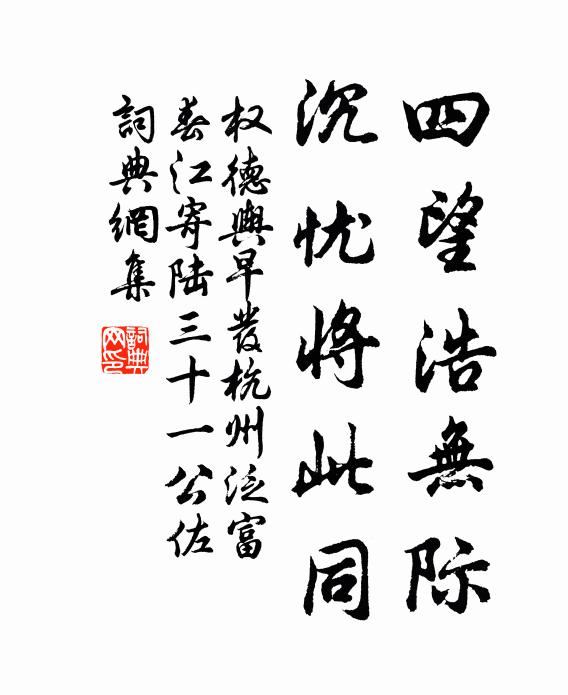 四望浩無际
沉忧将此同
权德輿早發杭州泛富
春江寄陆三十一公佐
詞典網集
詞典网印